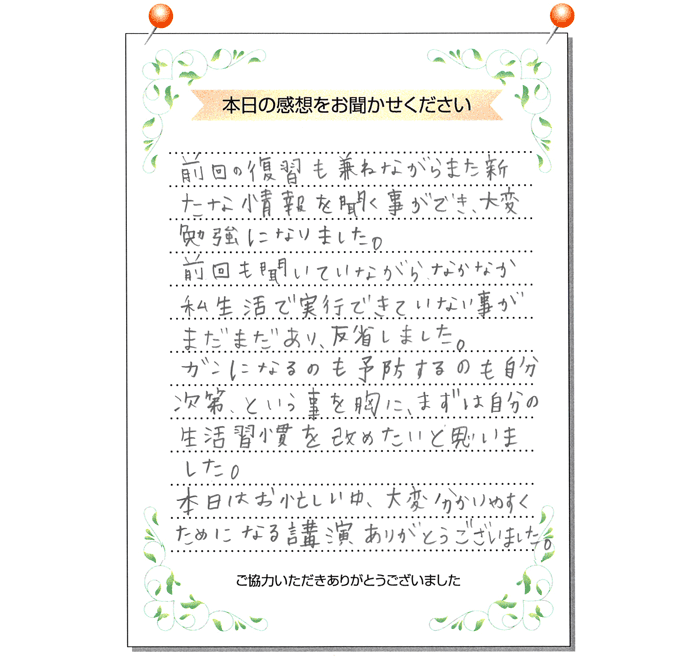 本日の感想をお聞かせください
前回の復習も兼ねながらまた新
たな情報を聞く事ができ、大変
勉強になりました。
前回も聞いていながら、なかなか
私生活で実行できていない事が
まだまだあり、反省しました。
ガンになるのも予防するのも自分
次第、という事を胸に、まずは自分の
生活習慣を改めたいと思いま
した。
本日はお忙しい中、大変分かりやすく
ためになる講演ありがとうございました。
ご協力いただきありがとうございました